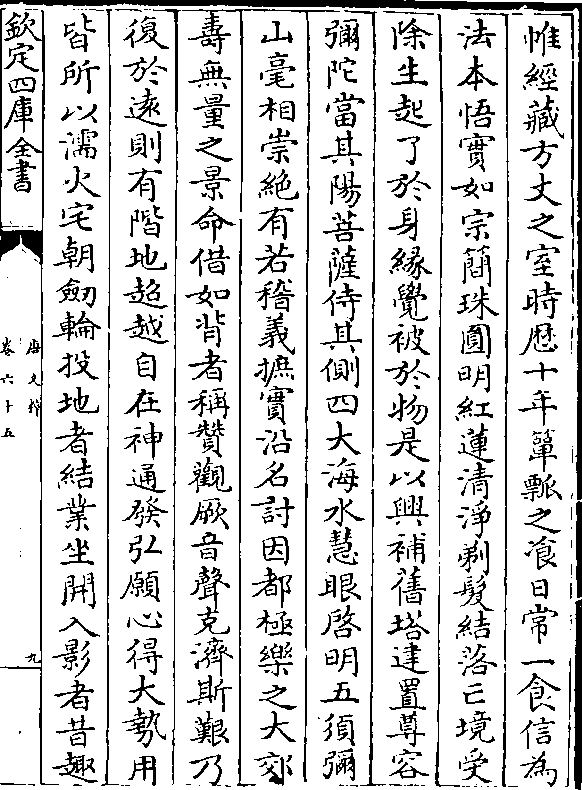 惟經藏方丈之室時歴十年簞瓢之飡日常一食信為
法本悟實如宗簡珠圓明紅蓮清淨剃髮結落亡境受
除生起了於身緣覺被於物是以興補舊塔建置尊容
彌陀當其陽菩薩侍其側四大海水慧眼啓明五須彌
山毫相崇絶有若稽義摭實沿名討因都極樂之大郊
壽無量之景命借如背者稱贊觀厥音聲克濟斯艱乃
復於遠則有階地超越自在神通發弘願心得大勢用
皆所以濡火宅朝劒輪投地者結業坐開入影者昔趣
欽定四庫全書
唐文粹
卷六十五
九